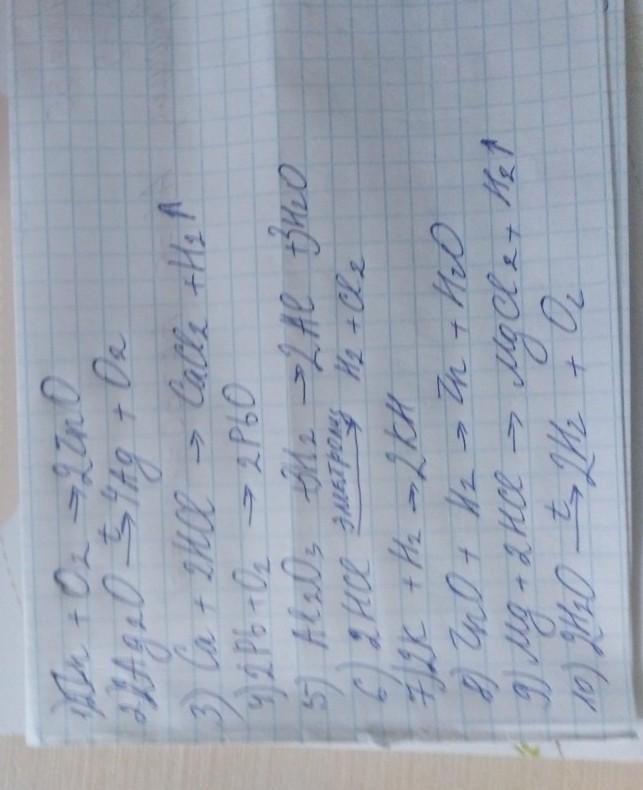 1) 2Zn + O2 → 2ZnO
2) 2Ag2O t→ 4Ag + O2
3) Ca + 2HCl → CaCl2 + H2↑
4) 2Pb + O2 → 2PbO
5) Al2O3 + 3H2 → 2Al + 3H2O
6) 2HCl электролиз→ H2 + Cl2
7) 2K + H2 → 2KH
8) ZnO + H2 → Zn + H2O
9) Mg + 2HCl → MgCl2 + H2↑
10) 2H2O t→ 2H2 + O2